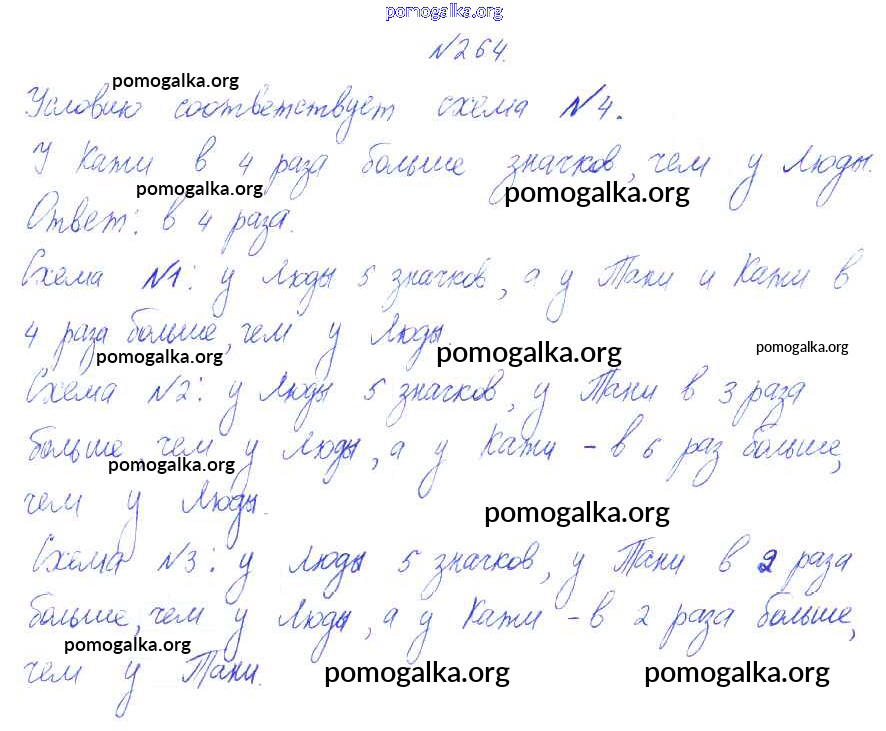 pomogalka.org
№264.
pomogalka.org
Условию соответствует схема №4.
У Кати в 4 раза больше значков, чем у Люды.
pomogalka.org pomogalka.org
Ответ: в 4 раза.
Схема №1: у Люды 5 значков, а у Тани и Кати в
4 раза больше, чем у Люды.
pomogalka.org pomogalka.org pomogalka.org
Схема №2: у Люды 5 значков, у Тани в 3 раза
больше, чем у Люды, а у Кати - в 6 раз больше,
pomogalka.org
чем у Люды.
pomogalka.org
Схема №3: у Люды 5 значков, у Тани в 2 раза
больше, чем у Люды, а у Кати - в 2 раза больше,
pomogalka.org
чем у Тани.
pomogalka.org pomogalka.org